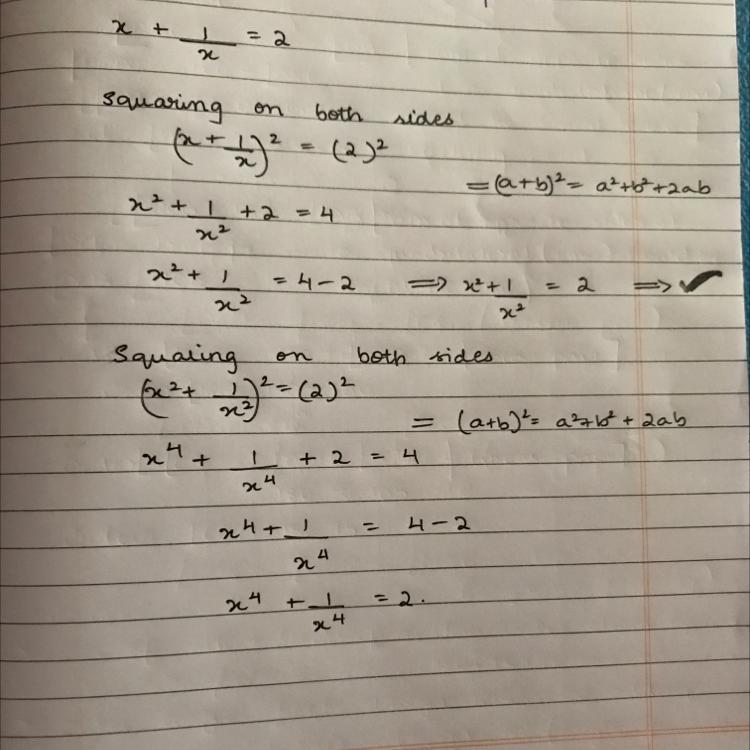 x + 1/x = 2
Squaring on both sides
(x + 1/x)² = (2)²
= (a+b)² = a²+b²+2ab
x² + 1/x² + 2 = 4
x² + 1/x² = 4 - 2 ⟹ x² + 1/x² = 2 ⟹ ✓
Squaring on both sides
(x² + 1/x²)² = (2)²
= (a+b)² = a²+b² + 2ab
x⁴ + 1/x⁴ + 2 = 4
x⁴ + 1/x⁴ = 4 - 2
x⁴ + 1/x⁴ = 2.